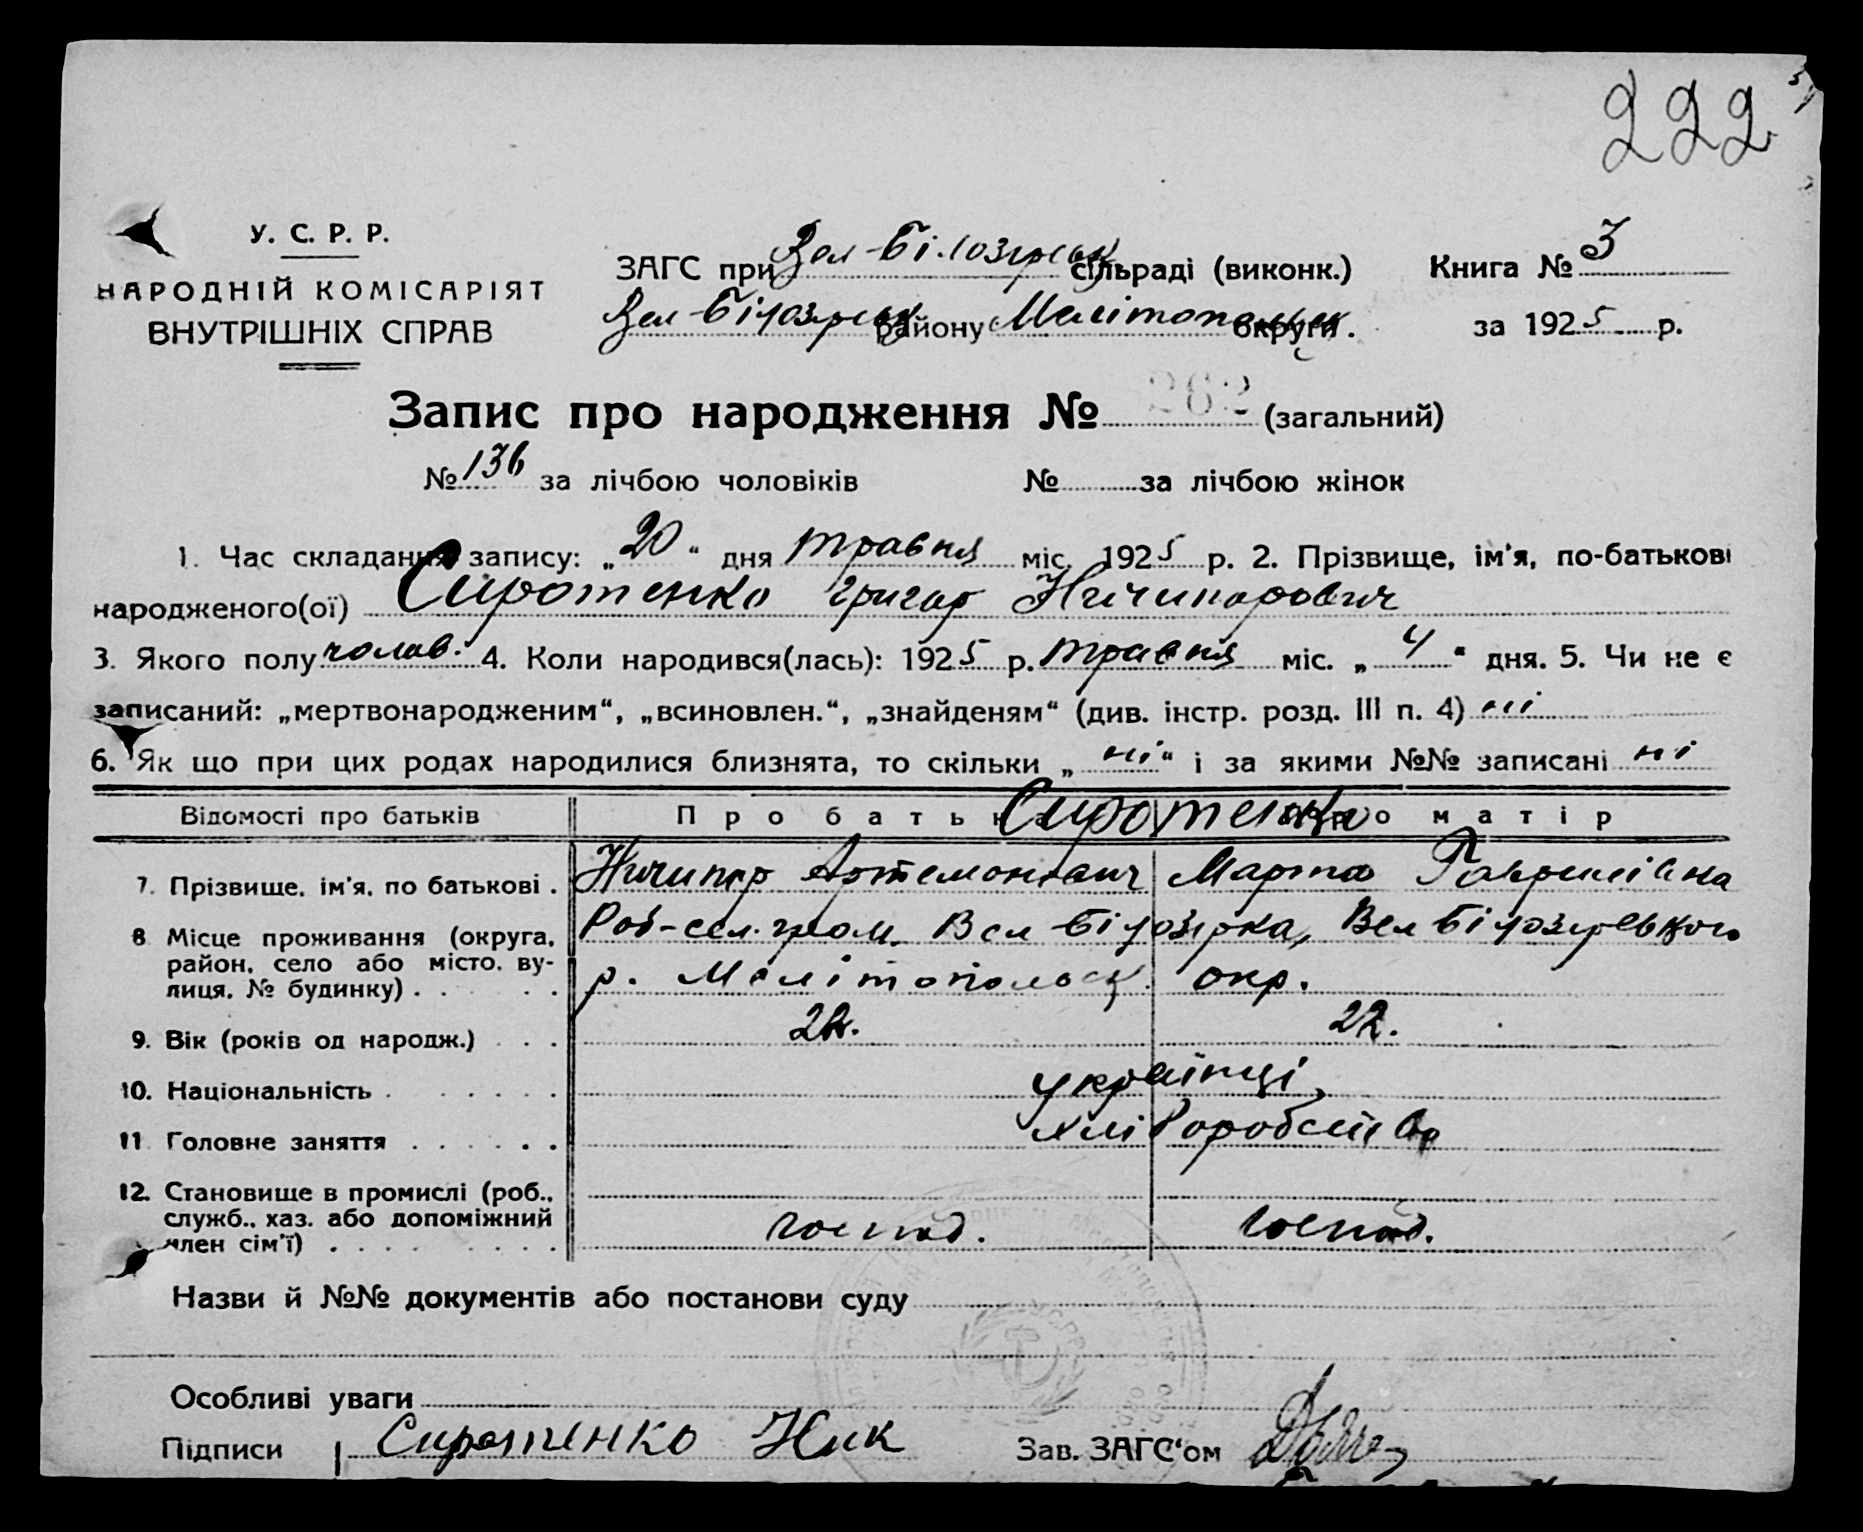 222
У. С. Р. Р.
НАРОДНІЙ КОМІСАРІЯТ
ВНУТРІШНІХ СПРАВ
ЗАГС при Вел-Білозірськ сільраді (виконк.)
Вел-Білозірськ району Мелітопольськ округи.
Книга № 3
за 1925 р.
Запис про народження № 262 (загальний)
№ 136 за лічбою чоловіків № за лічбою жінок
1. Час складання запису: „20“ дня травня міс. 1925 р. 2. Прізвище, ім'я, по-батькові
народженого(ої) Сиротенко Григор Ничипорович
3. Якого полу чолов. 4. Коли народився(лась): 1925 р. травня міс. „4“ дня. 5. Чи не є
записаний: „мертвонародженим“, „всиновлен.“, „знайденям“ (див. інстр. розд. III п. 4) ні
6. Як що при цих родах народилися близнята, то скільки „ні“ і за якими №№ записані ні
Відомості про батьків Про батька Про матір
Сиротенко
7. Прізвище, ім'я, по батькові . Ничипор Артемонович Марта Гаврилівна
8 Місце проживання (округа, район, село або місто, вулиця, № будинку) . . . .
Роб-сел. гром. Вел Білозірка, Вел Білозірського
р. Мелітопольськ. окр.
9. Вік (років од народж.) . . . 22. 22.
10. Національність . . . . . . українці
11 Головне заняття . . . . . . хліборобство
12. Становище в промислі (роб.,
служб., хаз. або допоміжний
член сім'ї) . . . . . . . господ. господ.
Назви й №№ документів або постанови суду
Особливі уваги
Підписи Сиротенко Ник Зав. ЗАГС'ом